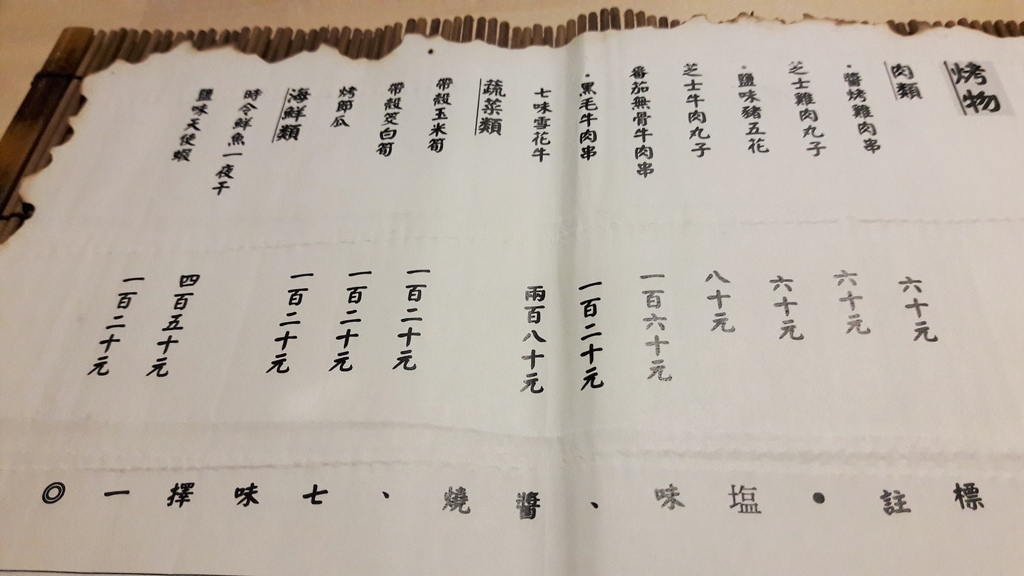 烤物
肉類
•醬烤雞肉串
六十元
芝士雞肉丸子
六十元
•鹽味豬五花
六十元
芝士牛肉丸子
八十元
番茄無骨牛肉串
一百六十元
•黑毛牛肉串
一百二十元
七味雪花牛
兩百八十元
蔬菜類
帶殼玉米筍
一百二十元
帶殼茭白筍
一百二十元
烤節瓜
一百二十元
海鮮類
時令鮮魚一夜干
四百五十元
鹽味天使蝦
一百二十元
標註•塩味、醬燒、七味擇一◎